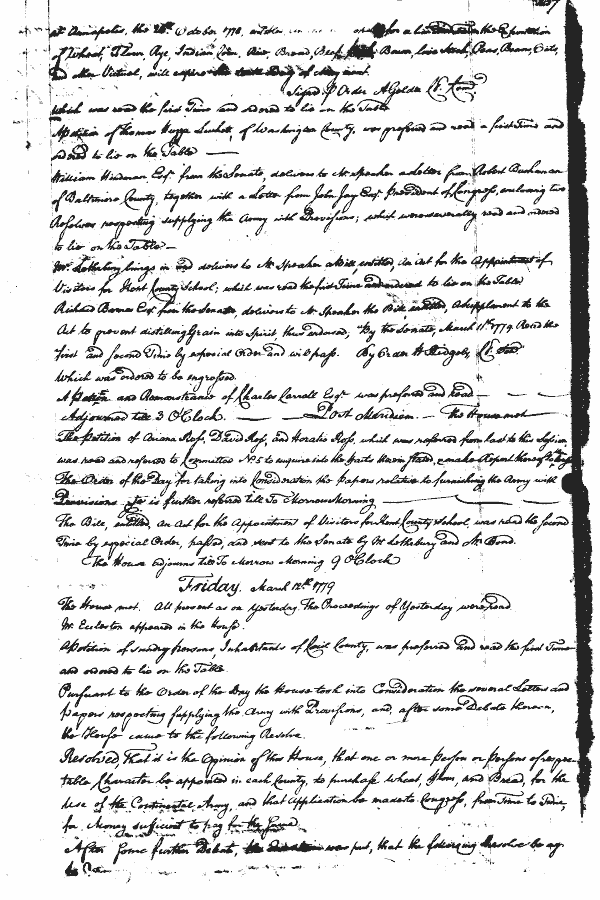 at Annapolis, the 28th October 1778, entitled an for a line the Exportation
of Wheat, Flour, Rye, Indian Corn, Rice, Bread, Beef, Pork, Bacon, live Stock, Peas, Beans, Oats,
and other Victual, will expire the day of May next.
Signed p Order A Golder Cl. Com
Which was read the first Time and ordered to lie on the Table
A petition of Thomas Luckett, of Washington County, was preferred and read a first Time and
ordered to lie on the Table —
William Hindman Esqr from the Senate, delivers to Mr Speaker a Letter from Robert Buchanan
of Baltimore County, together with a Letter from John Jay Esqr President of Congress, enclosing two
Resolves respecting supplying the Army with Provisions; which were severally read and ordered
to lie on the Table —
Mr. Lethrbury brings in and delivers to Mr Speaker a Bill, entitled, an Act for the Appointment of
Visitors for Kent County School; which was read the first Time and ordered to lie on the Table
Richard Barnes Esqr from the Senate, delivers to Mr Speaker the Bill entitled, A Supplement to the
Act to prevent distilling Grain into Spirit thus endorsed, "By the Senate, March 11th 1779. Read the
first and second Time by especial Order and will pass. By Order W Ridgely, Cl. Sen
Which was ordered to be engrossed.
A Petition and Remonstrance of Charles Carroll Esqr was preferred and read
Adjourned till 3 O'Clock. — Post Meridiem. — The House met
The Petition of Ariana Ross, David Ross, and Horatio Ross, which was referred from last to this Session
was read and referred to Committee No. 5 to enquire into the facts therein stated, & make Report thereof to
The Order of the Day for taking into Consideration the Papers relative to furnishing the Army with
Provisions is further referred till To Morrow Morning
The Bill, entitled, an Act for the Appointment of Visitors for Kent County School, was read the second
Time by especial Order, passed, and sent to the Senate by Mr Lethrbury and Mr Bond.
The House adjourns till To Morrow Morning 9 O'Clock
Friday, March 12th 1779
The House met. All present as on Yesterday. The Proceedings of Yesterday were read
Mr. Eccleston appeared in the House
A Petition of sundry persons Inhabitants of Cecil County, was preferred and read the first Time
and ordered to lie on the Table
Pursuant to the Order of the Day the House took into Consideration the several Letters and
Papers respecting supplying the Army with Provisions, and, after some Debate thereon,
the House came to the following Resolve
Resolved, That it is the Opinion of this House, that one or more Person or Persons of respec-
table Character be appointed in each County, to purchase Wheat, Flour, and Bread, for the
Use of the Continental Army, and that Application be made to Congress, from Time to Time,
for Money sufficient to pay for the same.
After some further Debate, the Question was put, that the following Resolve be ag